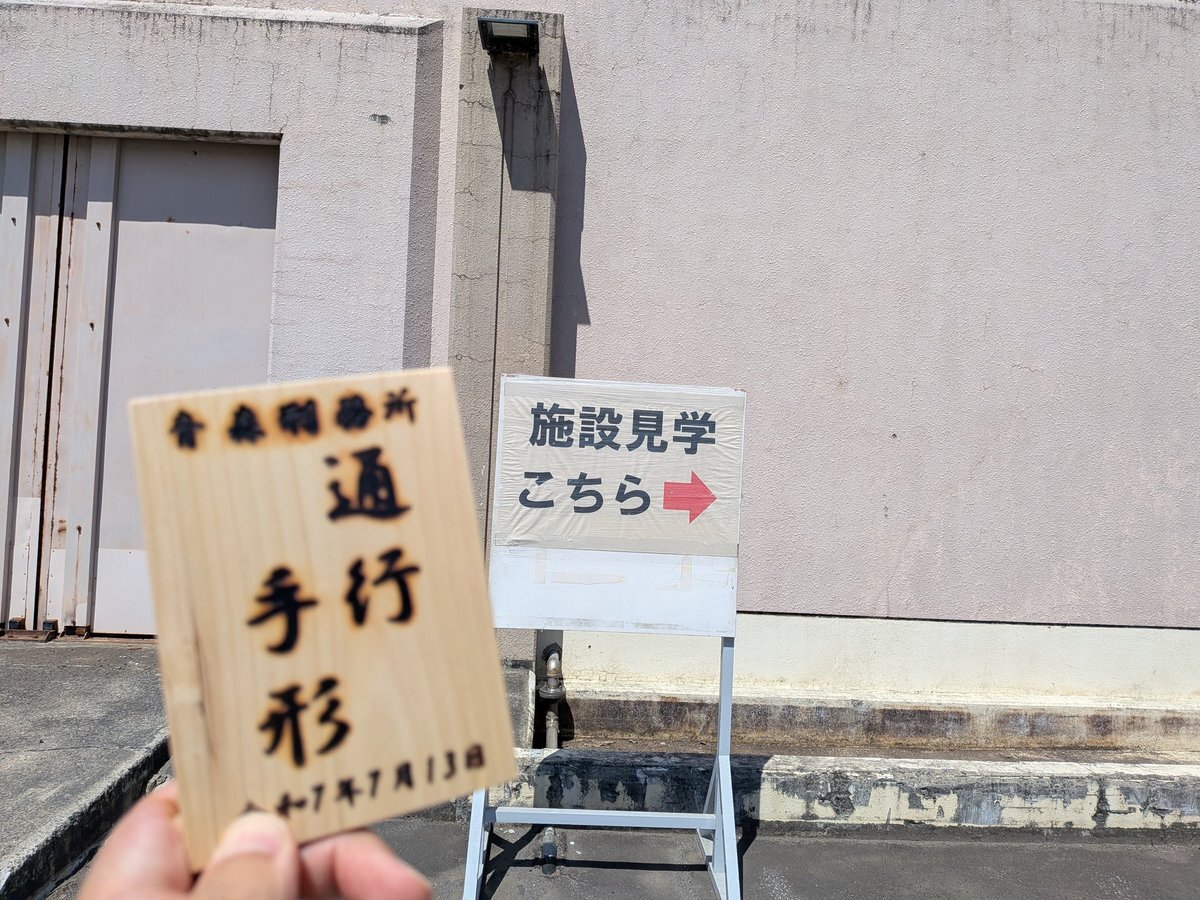 青森刑務所
通行
手形
令和7年7月13日
施設見学
こちら